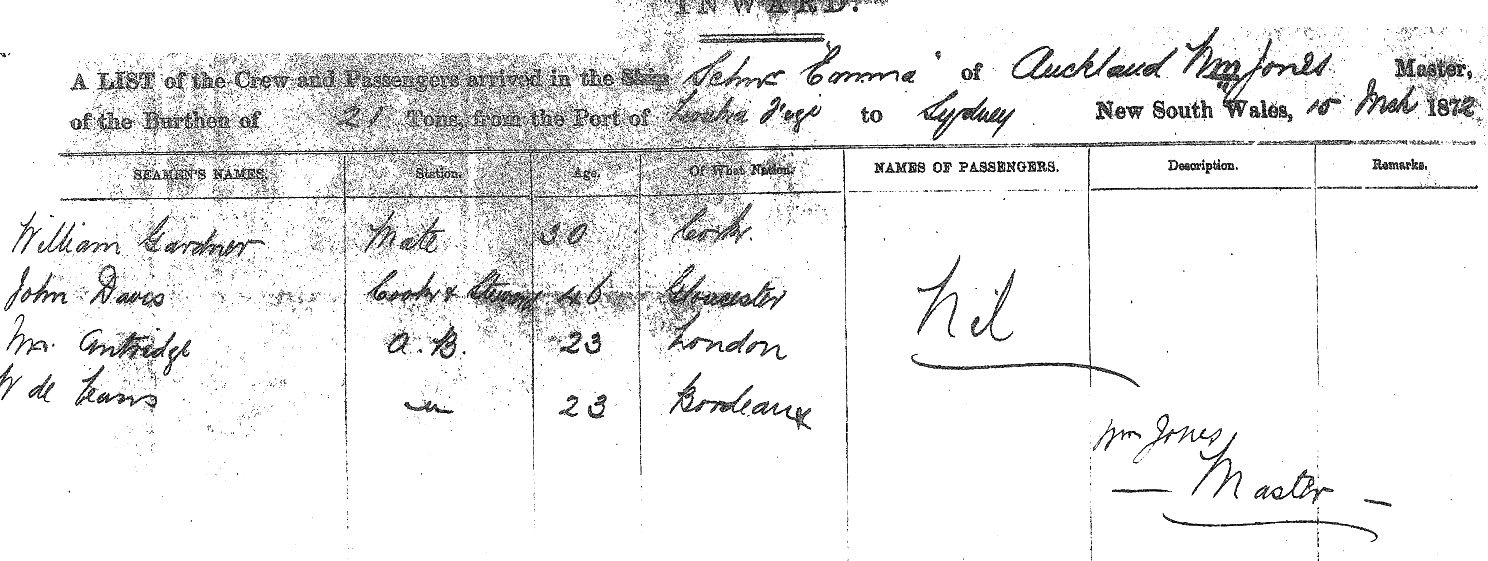 INWARD.
A LIST of the Crew and Passengers arrived in the Ship Schnr "Emma" of Auckland Wm Jones Master,
of the Burthen of 21 Tons, from the Port of to Sydney New South Wales, 15 Mch 1872
SEAMEN'S NAMES. Station. Age. Of What Nation. NAMES OF PASSENGERS. Description. Remarks.
William Gardner Mate 30 Cork.
John Davis Cook & Steward 46 Gloucester
Wm. Antridge A.B. 23 London
W de 23 Bordeaux
Nil
Wm Jones
— Master —